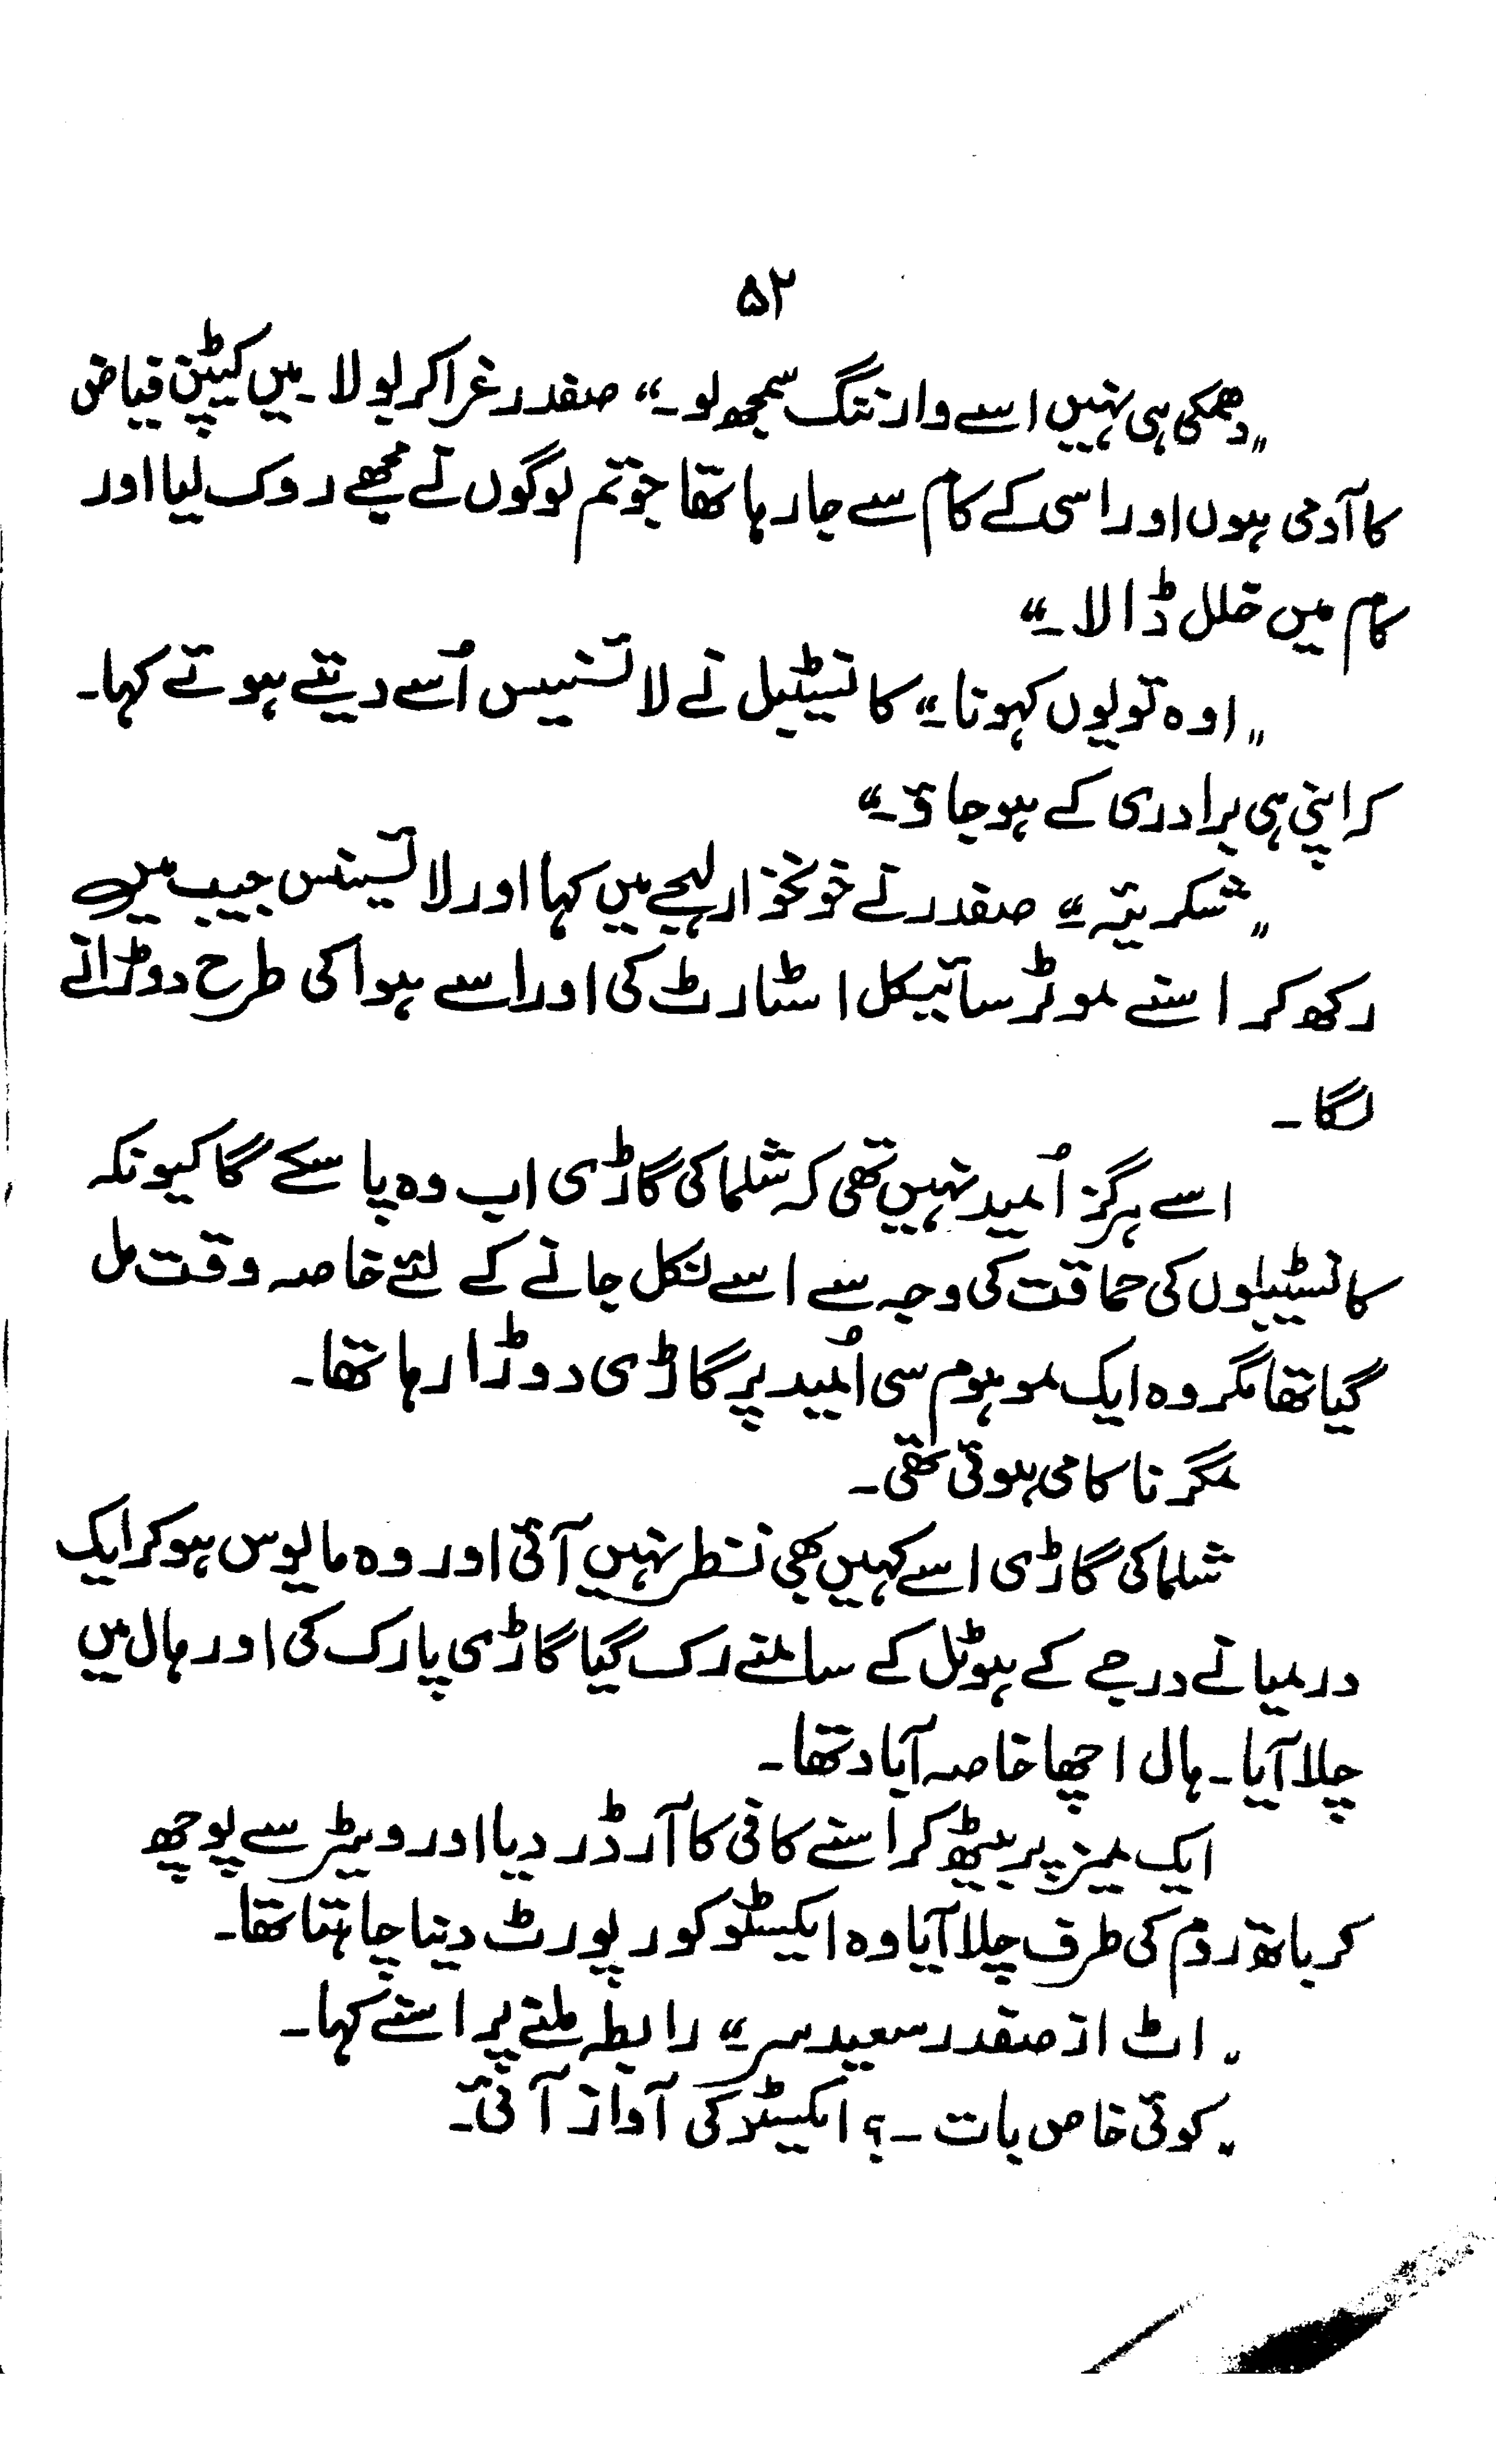 ۵۲
"دھمکی ہی نہیں اسے وارننگ سمجھ لو۔" صفدر غرا کر بولا۔ میں کیپٹن فیاض
کا آدمی ہوں اور اسی کے کام سے جا رہا تھا جو تم لوگوں نے مجھے روک لیا اور
کام میں خلل ڈالا۔"
"اوہ تو یوں کہو نا۔" کانسٹیبل نے لائسنیس اُسے دیتے ہوئے کہا۔
کر اپنی ہی برادری کے ہو جاؤ۔"
"شکریہ۔" صفدر نے خونخوار لہجے میں کہا اور لائسینس جیب میں
رکھ کر اسنے موٹر سائیکل اسٹارٹ کی اور اسے ہوا کی طرح دوڑانے
لگا۔
اسے ہرگز اُمید نہیں تھی کہ شلما کی گاڑی اب وہ پا سکے گا کیونکہ
کانسٹیبلوں کی حماقت کی وجہ سے اسے نکل جانے کے لئے خاصہ وقت مل
گیا تھا مگر وہ ایک موہوم سی اُمید پر گاڑی دوڑا رہا تھا۔
مگر ناکامی ہوئی تھی۔
شلما کی گاڑی اسے کہیں بھی نظر نہیں آئی اور وہ مایوس ہو کر ایک
درمیانے درجے کے ہوٹل کے سامنے رک گیا گاڑی پارک کی اور ہال میں
چلا آیا۔ ہال اچھا خاصہ آباد تھا۔
ایک میز پر بیٹھ کر اسنے کافی کا آرڈر دیا اور ویٹر سے پوچھ
کر باتھ روم کی طرف چلا آیا وہ ایکسٹو کو رپورٹ دینا چاہتا تھا۔
"اٹ از صفدر سعید سر۔" رابطہ ملنے پر اسنے کہا۔
"کوئی خاص بات ۔؟ ایکسٹو کی آواز آئی۔